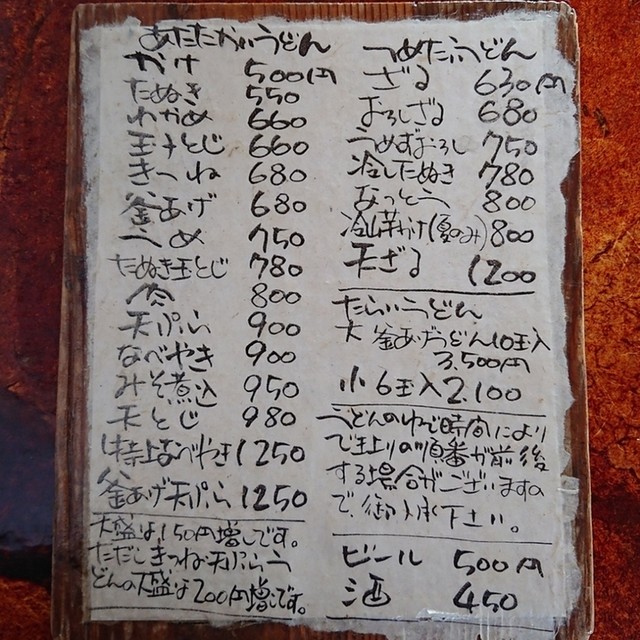 あたたかいうどん
かけ 500円
たぬき 550
わかめ 660
玉子とじ 660
きつね 680
釜あげ 680
うめ 750
たぬき玉とじ 780
肉 800
天ぷら 900
なべやき 900
みそ煮込 950
天とじ 980
特上なべやき 1250
釜あげ天ぷら 1250
大盛は150円増しです。
ただしきつね・天ぷらう
どんの大盛は200円増しです。
つめたいうどん
ざる 630円
おろしざる 680
うめずおろし 750
冷したぬき 780
なっとう 800
冷山芋かけ(夏のみ) 800
天ざる 1200
たらいうどん
大 釜あげうどん10玉入
3,500円
小 6玉入 2.100
うどんのゆで時間により
で上りの順番が前後
する場合がございますの
で、御了承下さい。
ビール 500円
酒 450